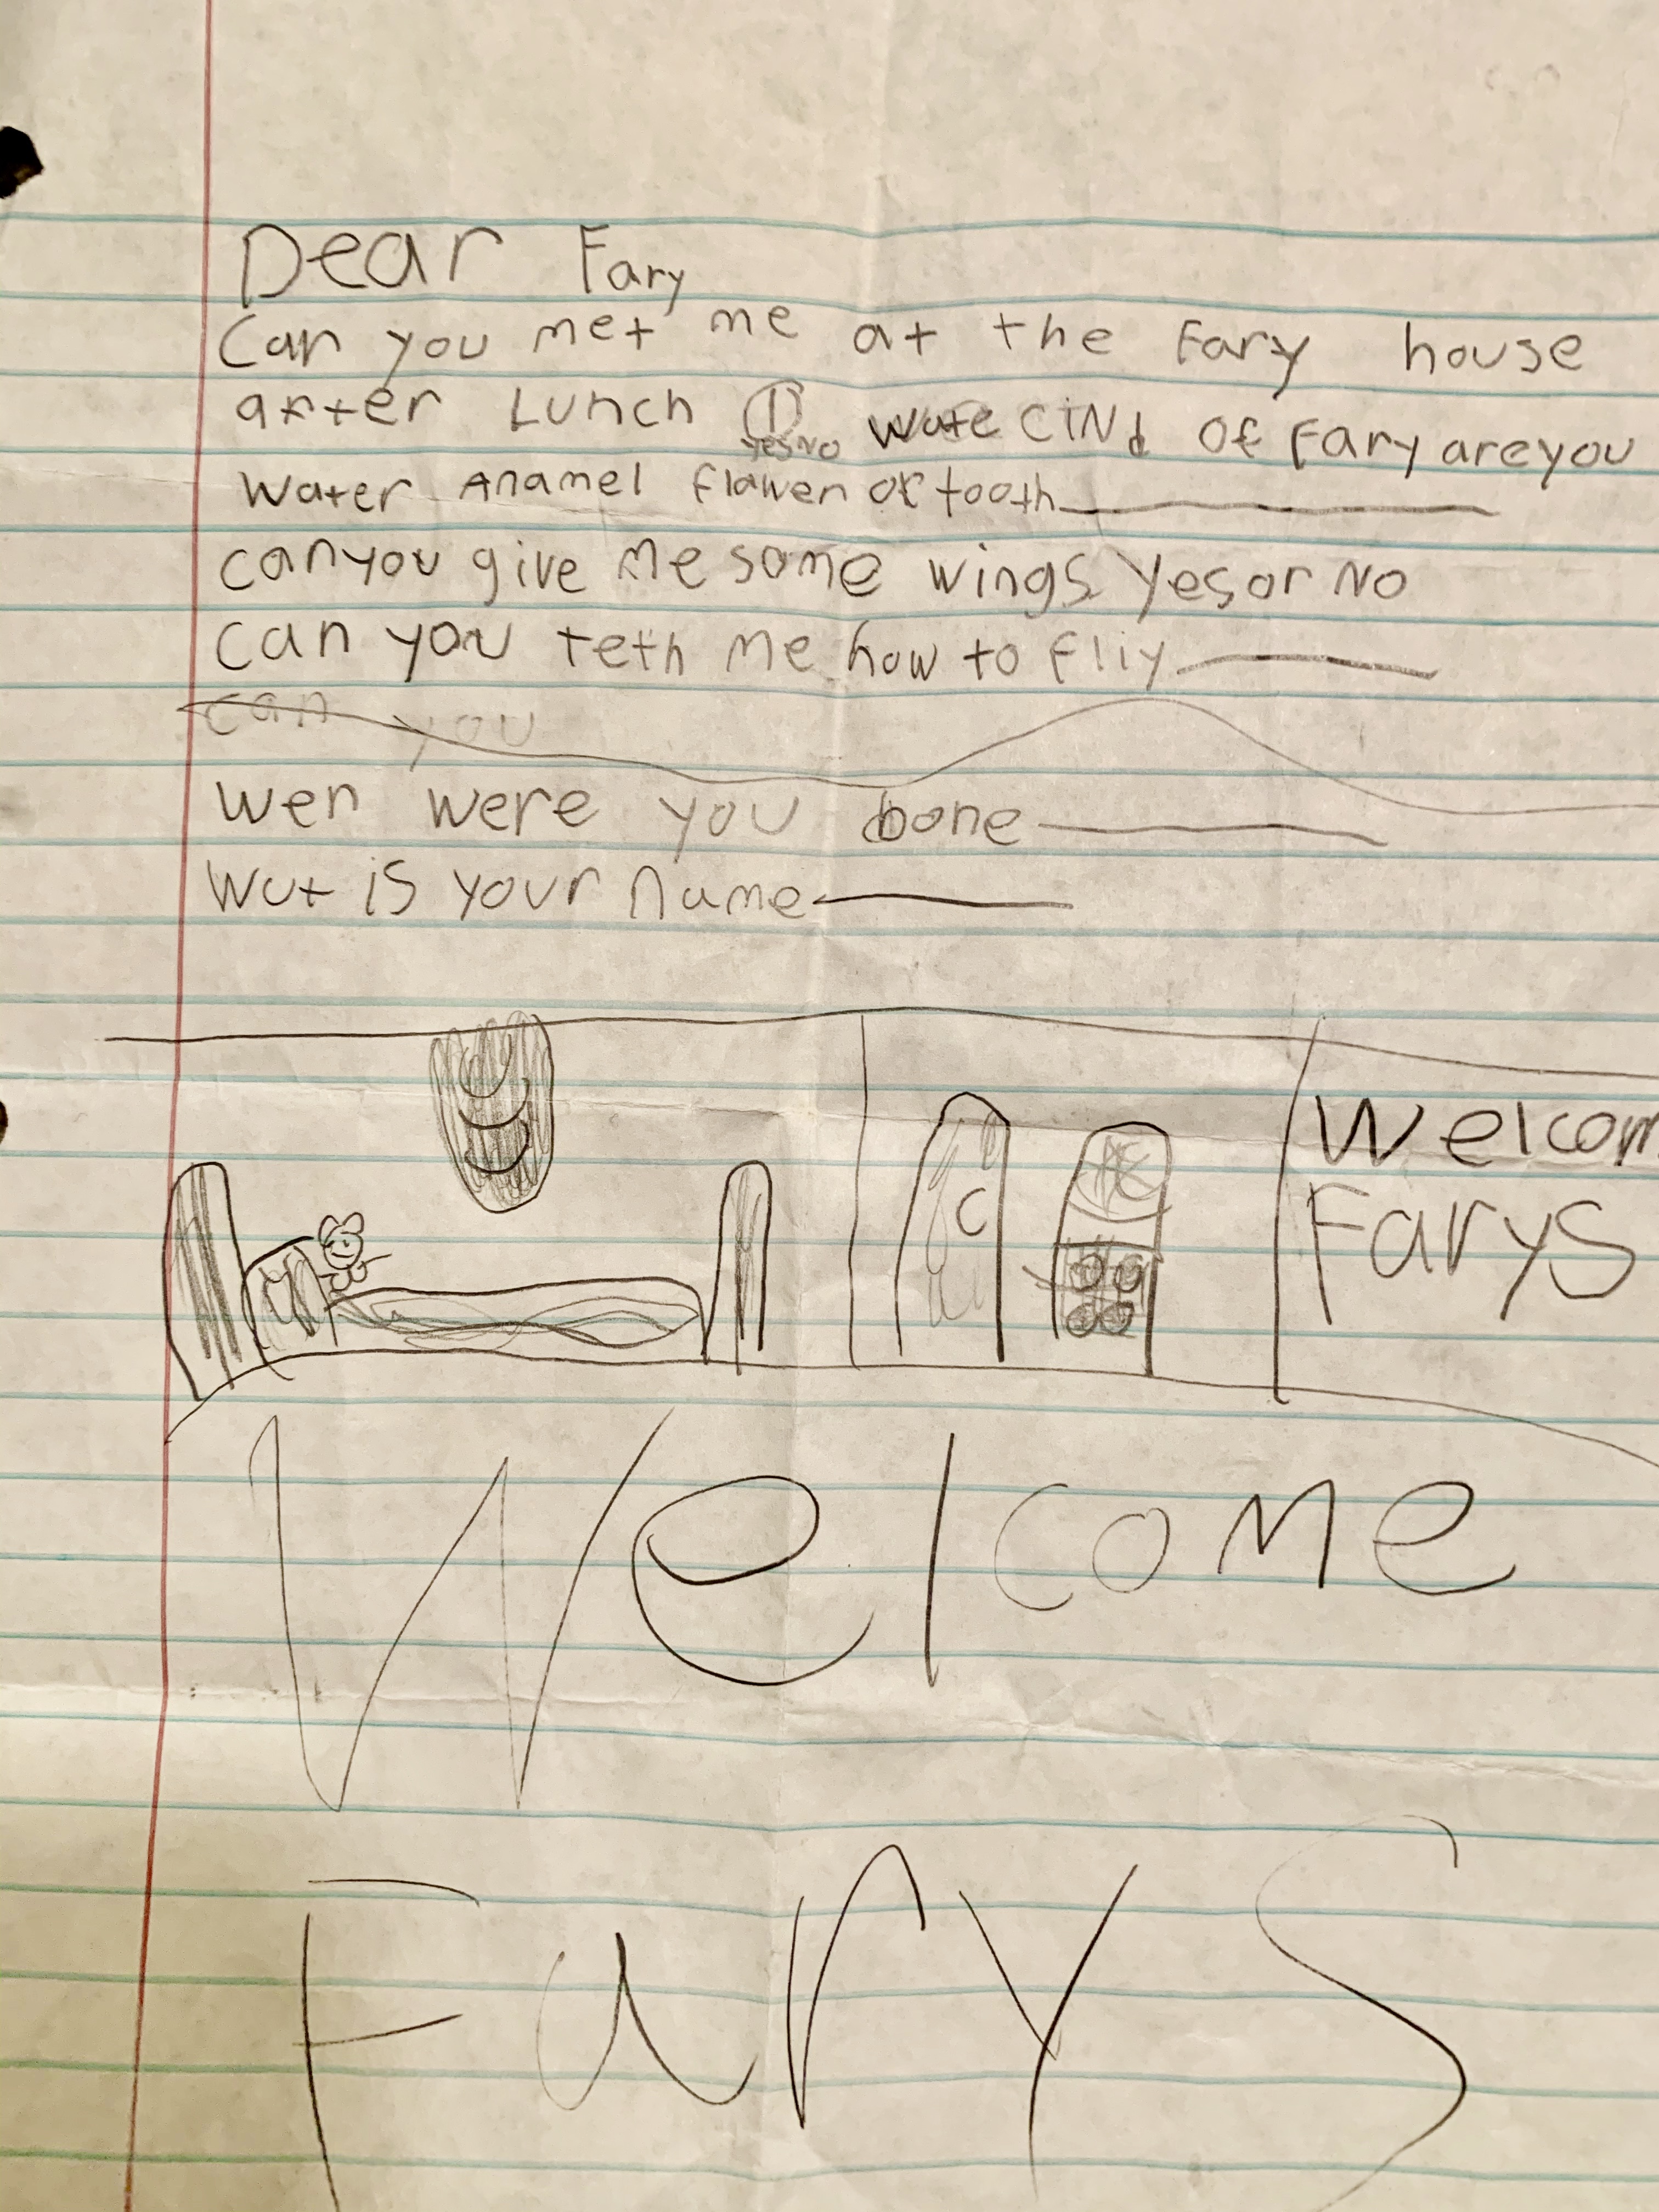 Dear Fary
Can you met me at the Fary house
after Lunch
yes no
wate CINd of Fary are you
Water Anamel flawer or tooth
can you give me some wings yes or No
can you teth me how to fliy
can you
wen were you bone
wut is your name
Welcom
Farys
Welcome
Farys